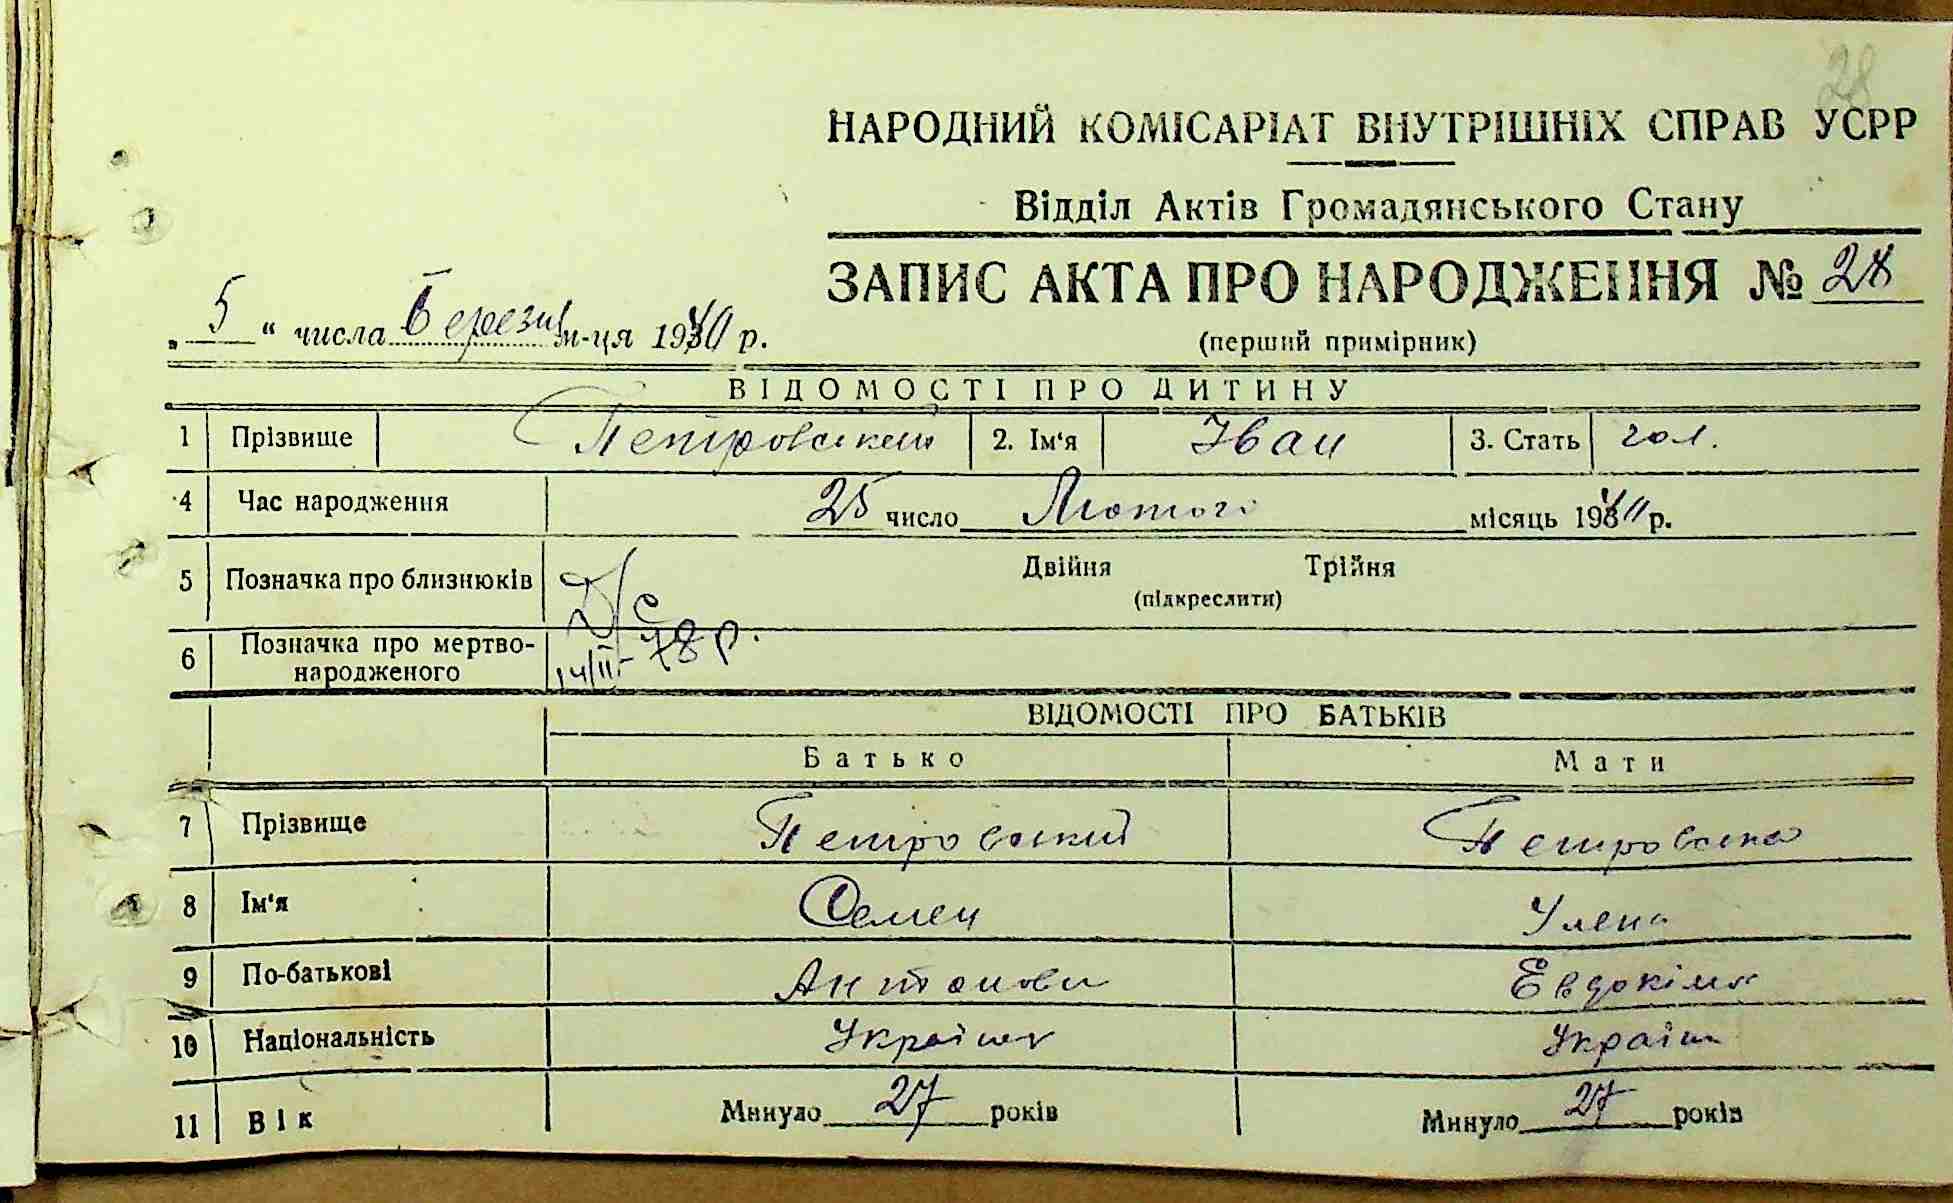 28
НАРОДНИЙ КОМІСАРІАТ ВНУТРІШНІХ СПРАВ УСРР
Відділ Актів Громадянського Стану
ЗАПИС АКТА ПРО НАРОДЖЕННЯ № 28
„ 5 “ числа Березня м-ця 1940 р.
(перший примірник)
ВІДОМОСТІ ПРО ДИТИНУ
1 Прізвище Петровський 2. Ім'я Іван 3. Стать чол.
4 Час народження 25 число Лютого місяць 1940 р.
5 Позначка про близнюків Двійня Трійня
(підкреслити)
Д/С
6 Позначка про мертво-
народженого 14/II-78 р.
ВІДОМОСТІ ПРО БАТЬКІВ
Батько Мати
7 Прізвище Петровський Петровська
8 Ім'я Семен Улена
9 По-батькові Антонови Евдокімя
10 Національність Українец Україн
11 Вік Минуло 27 років Минуло 27 років